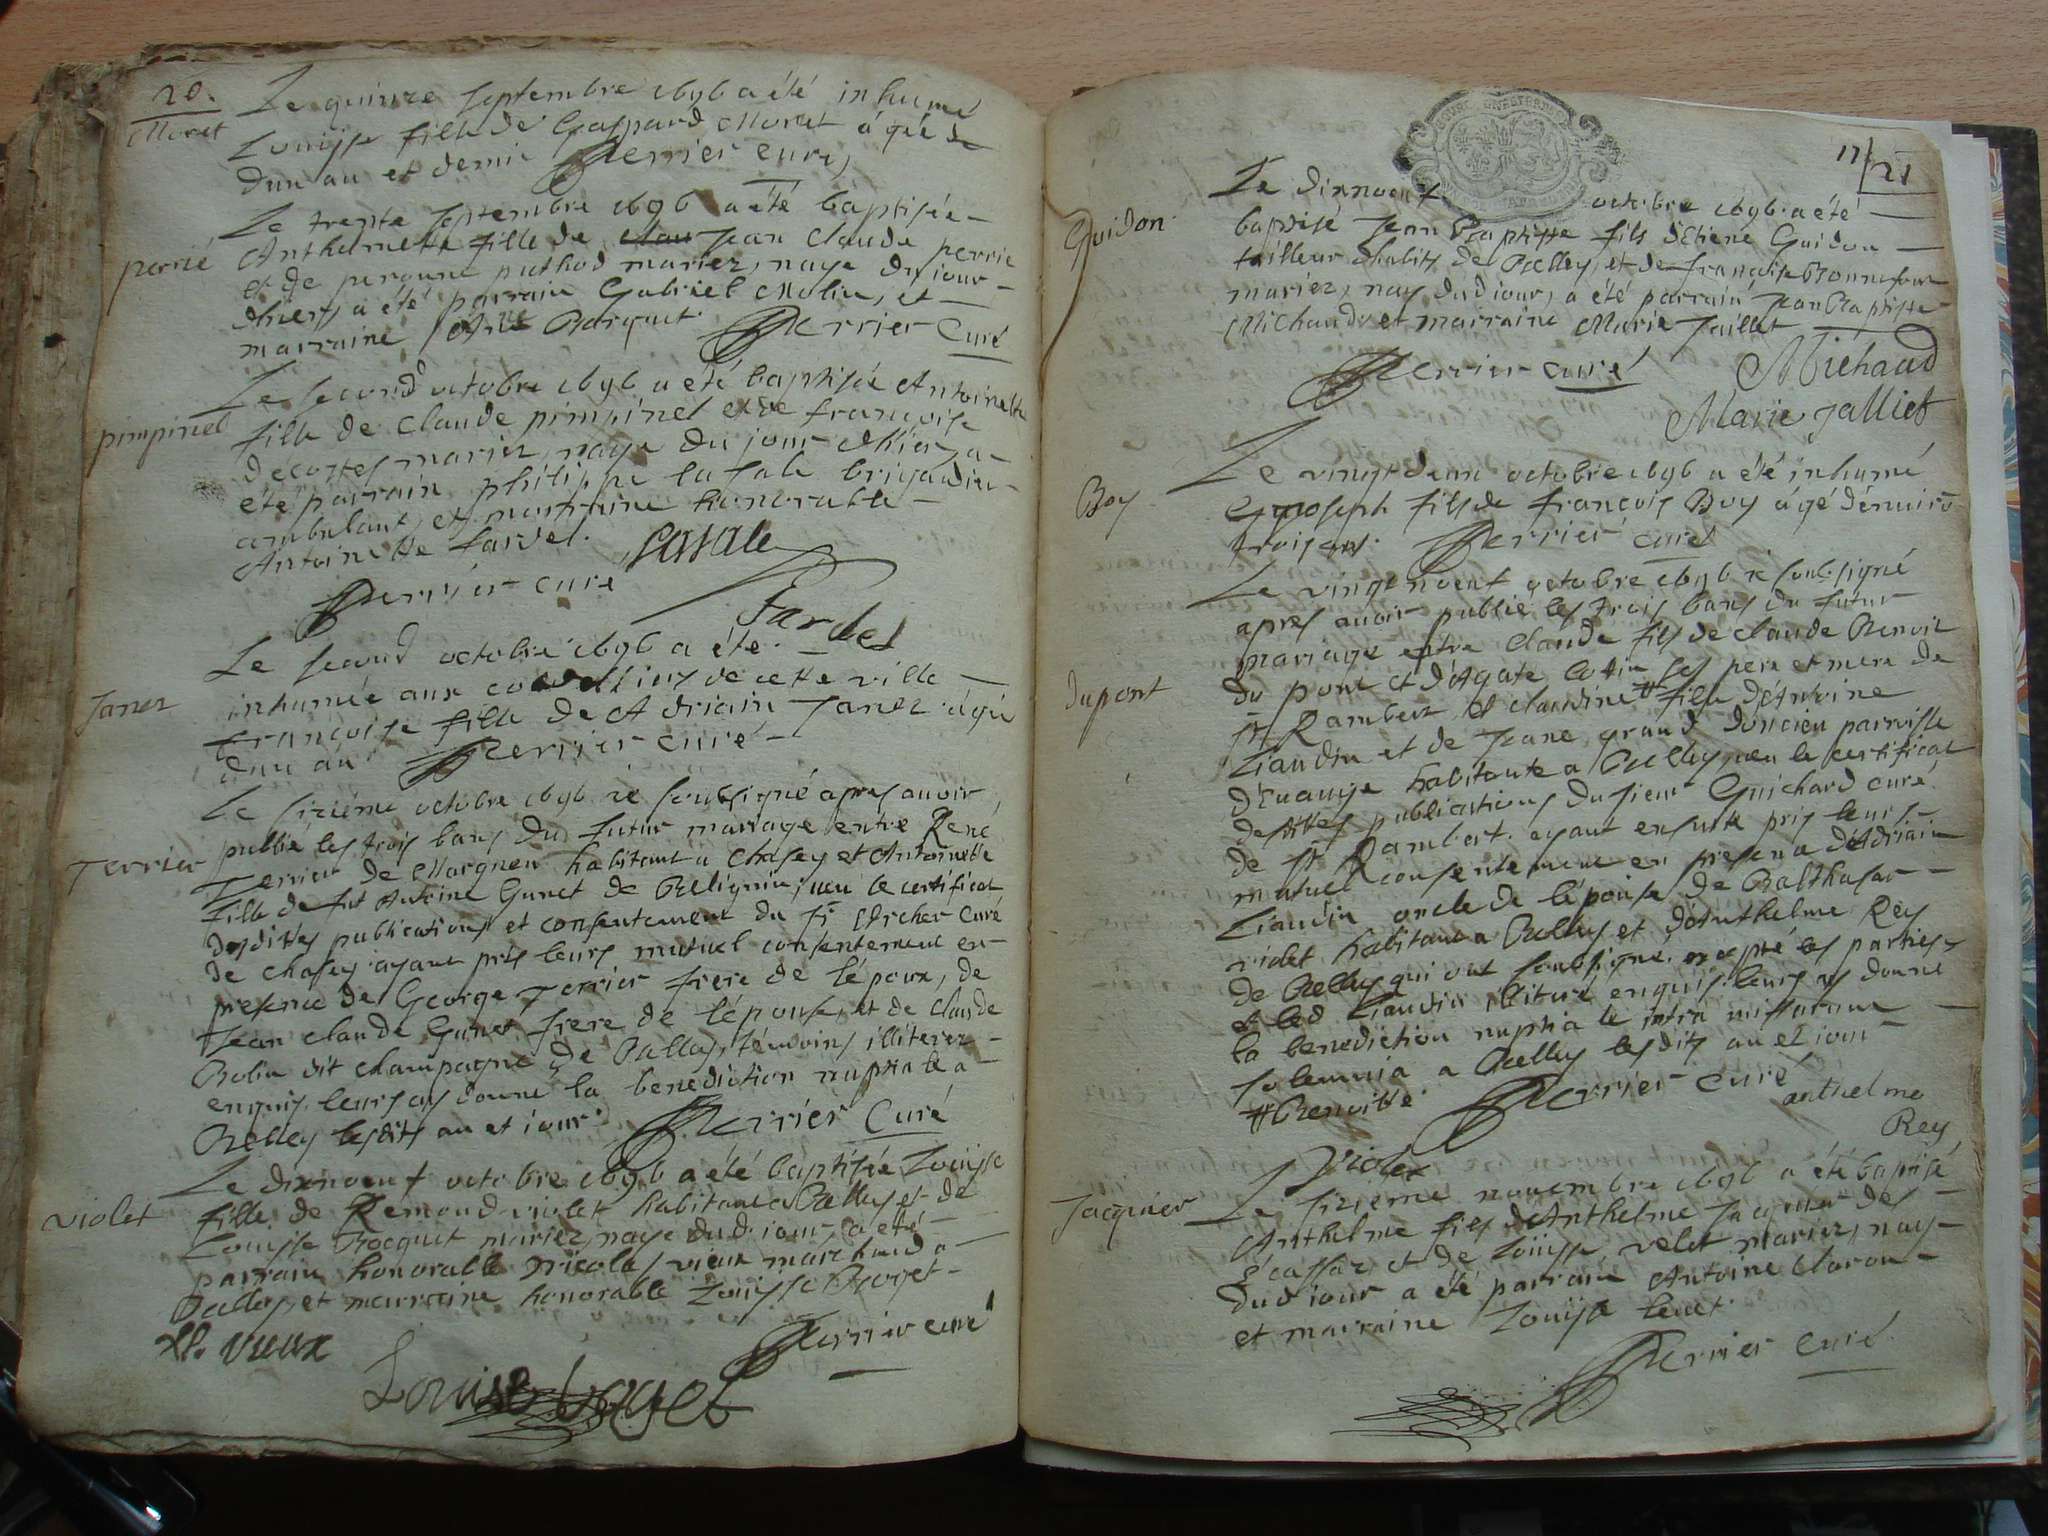 20.
Moret
Le quinze septembre 1696 a été inhumé
Louijse fille de Gaspard Moret âgée de
dun an et demi Perrier curé
perrié
Le trente septembre 1696 a été baptisée
Anthelmette fille de Jean Claude perrié
et de peronne puthod mariez, naye du jour
dhiers, a été parrain Gabriel Molin, et
marraine Barquet. Perrier Curé
pimpinel
Le second octobre 1696 a été baptisée Antoinette
fille de Claude pimpinel et de françoise
decostes mariez, naye du jour dhier, a
été parrain philippe lasale brigadier
ambulant, et marraine honorable
Antoinette fardel. Lasale
Perrier cure
fardel
Janez
Le second octobre 1696 a été
inhumée aux de cette ville
françoise fille de Adriain Janez âgée
dun an Perrier curé
Terrier
Le sizième octobre 1696 ie soubsigné apres avoir
publié les trois bans du futur mariage entre René
Terrier de Marignieu habitant a Chasey et Antoinette
fille de fut Antoine Gunet de Belignin, veu le certificat
desdittes publications et consentement du Sr Archer curé
de Chasey ayant pris leurs mutuel consentement en
presence de George Terrier frere de lépoux, de
Jean Claude Gunet frere de lépouse, et de Claude
Bolin dit Champagne de Belley, témoins illiterez
enquis, leurs ay donné la benediction nuptiale a
Belley lesdits an et iour Perrier Curé
violet
Le dixneuf octobre 1696 a été baptisée Louijse
fille de Remond violet habitant a Belley et de
Louijse Bocquet mariez, naye dud. iour, a été
parrain honorable nicolas vieux marchand a
Belley, et marraine honorable Louijse Roget
N. vieux
Perrier curé
Louise Roget
17/21
Guidon
Le dixneuf octobre 1696 a été
baptisé Jean Baptiste fils dEtiene Guidon
tailleur dhabits de Belley, et de françoise Bonnefour
mariez, nay dud iour, a été parrain Jean Baptiste
Michaud et marraine Marie Jaillet
Perrier curé Michaud
Marie jalliet
Boy
Le vingt deux octobre 1696 a été inhumé
Joseph fils de françois Boy âgé d'environ
trois ans. Perrier curé
Le vingt neuf octobre 1696 ie soubsigné
apres avoir publié les trois bans du futur
mariage entre Claude fils de Claude Benoit
dupont
du pont et d'Agate Cotin ses pere et mere de
St Rambert, et Claudine # fille d'Antoine
Liaudin et de Jeane grand doncieu parroisse
habitante a Belley, veu le certificat
desdittes publications du sieur Guichard curé
de St Rambert. ayant ensuite pris leurs
mutuel consentement en presence d'Adriain
Liaudin oncle de lépouse, de Balthasar
violet habitant a Belley et d'Anthelme Rey
de Belley qui ont soubsigné, excepté les parties
et led Liaudin illiteré enquis, leurs ay donné
la benediction nuptiale intra missarum
solemnia a Belley lesdits an et iour
# Benoitte Perrier curé
anthelme
Rey
Violet
Jacquier
Le sizieme novembre 1696 a été baptisé
Anthelme fils d'Anthelme Jacquier de
et de Louijse velet mariez, nay
dud iour a été parrain Antoine
et marraine Louijse
Perrier curé